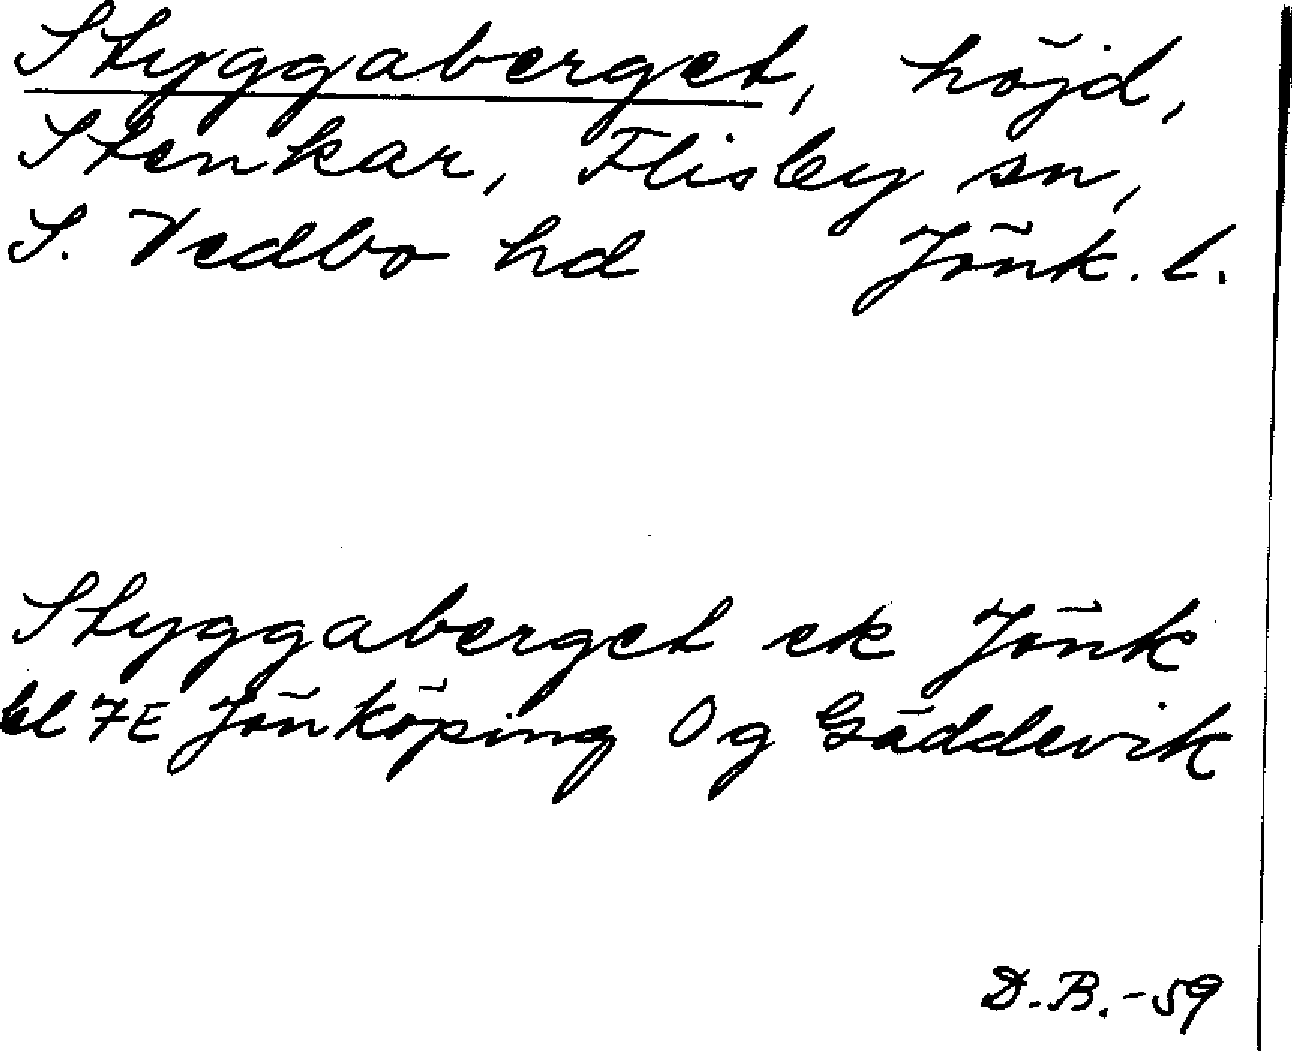 Styggaberget, höjd,
Stenkar, Flisby sn,
S. Vedbo hd Jönk. l.
Styggaberget ek Jönk
bl 7E Jönköping 0g Gäddevik
D.B.-59